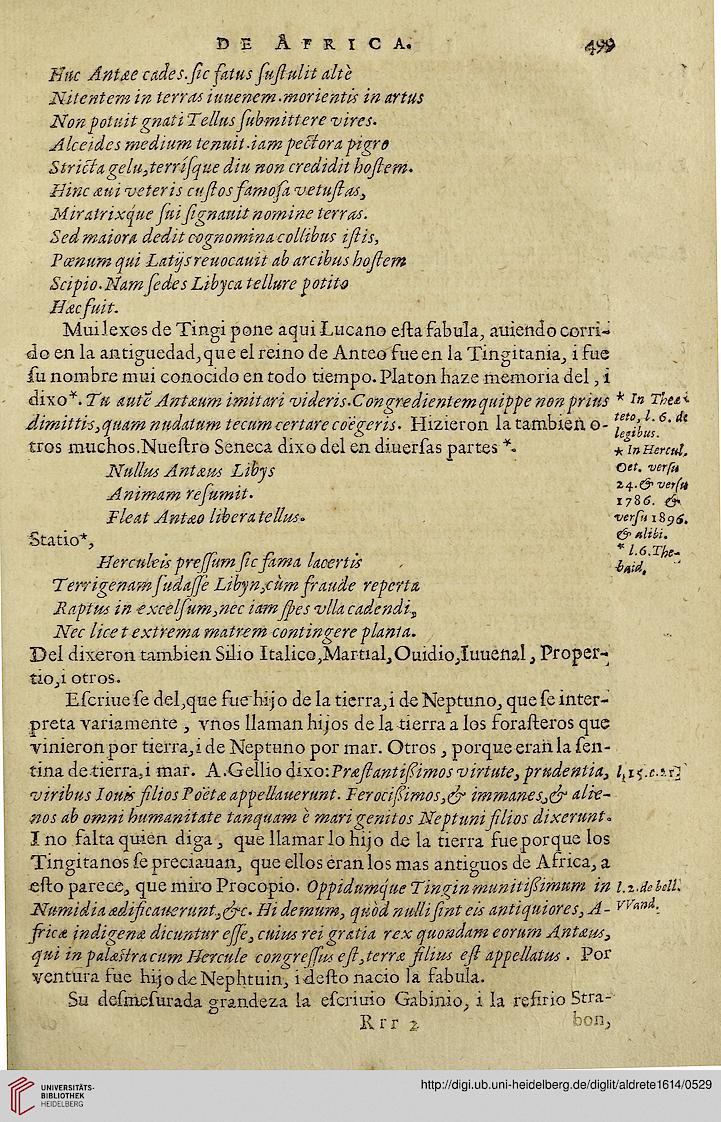 DE AFRICA. 499
Huc Antæe cades. sic fatus sustulit altè
Nitentem in terras iuuenem. morientis in artus
Non potuit gnati Tellus submittere vires.
Alceides medium tenuit. iam pectora pigro
Stricta gelu, terrisque diu non credidit hostem.
Hinc æui veteris custos famosa vetustas,
Miratrixque sui signauit nomine terras.
Sed maiora dedit cognomina collibus istis,
Pœnum qui Latijs reuocauit ab arcibus hostem
Scipio. Nam sedes Libyca tellure potito
Hæc fuit.
Mui lexos de Tingi pone aqui Lucano esta fabula, auiendo corri-
do en la antiguedad, que el reino de Anteo fue en la Tingitania, i fue
su nombre mui conocido en todo tiempo. Platon haze memoria del, i
dixo*. Tu autē Antæum imitari videris. Congredientem quippe non prius
dimittis, quam nudatum tecum certare coëgeris. Hizieron la tambien o-
tros muchos. Nuestro Seneca dixo del en diuersas partes *.
* In Theæ
teto, l. 6. de
legibus.
* In Hercul.
Oet. versu
24. & versu
1786. &
versu 1896.
& alibi.
* l.6. The-
baid.
Nullus Antæus Libys
Animam resumit.
Fleat Antæo libera tellus.
Statio*,
Herculeis pressum sic fama lacertis
Terrigenam sudasse Libyn, cùm fraude reperta
Raptus in excelsum, nec iam spes vlla cadendi,
Nec licet extrema matrem contingere planta.
Del dixeron tambien Silio Italico, Martial, Ouidio, Iuuenal, Proper-
tio, i otros.
Escriue se del, que fue hijo de la tierra, i de Neptuno, que se inter-
preta variamente, vnos llaman hijos de la tierra a los forasteros que
vinieron por tierra, i de Neptuno por mar. Otros, porque eran la sen-
tina de tierra, i mar. A. Gellio dixo: Præstantißimos virtute, prudentia,
viribus Iouis filios Poëtæ appellauerunt. Ferocißimos, & immanes, & alie-
nos ab omni humanitate tanquam è mari genitos Neptuni filios dixerunt.
I no falta quien diga, que llamarlo hijo de la tierra fue porque los
Tingitanos se preciauan, que ellos eran los mas antiguos de Africa, a
esto parece, que miro Procopio. Oppidumque Tingin munitißimum in
Numidia ædificauerunt, &c. Hi demum, quòd nulli sint eis antiquiores, A-
fricæ indigenæ dicuntur esse, cuius rei gratia rex quondam eorum Antæus,
qui in palæstra cum Hercule congressus est, terræ filius est appellatus. Por
ventura fue hijo de Nephtuin, i desto nacio la fabula.
l. 15. c. 21.
l. 2. de bell.
VVand.
Su desmesurada grandeza la escriuio Gabinio, i la refirio Stra-
Rrr 2 bon,
UNIVERSITÄTS-
BIBLIOTHEK
HEIDELBERG
http://digi.ub.uni-heidelberg.de/diglit/aldrete1614/0529